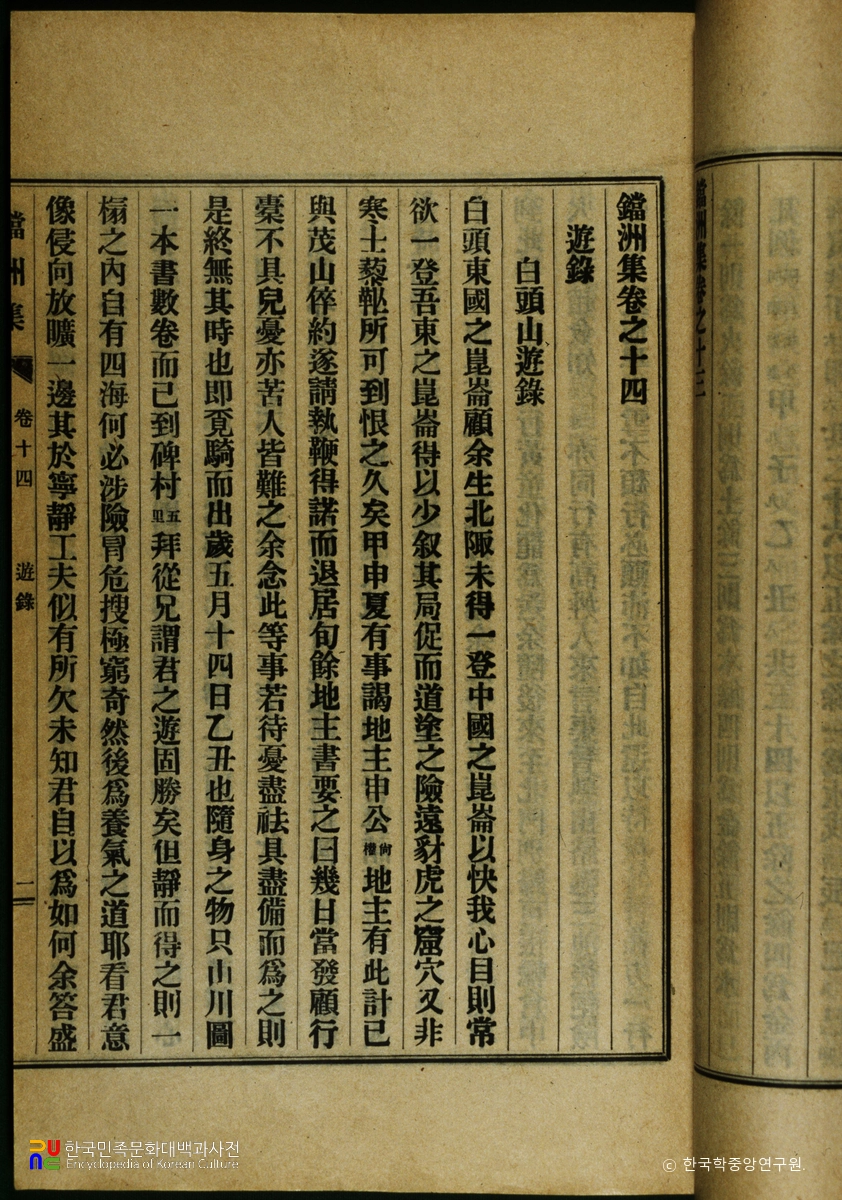 鐺洲集卷之十四
遊錄
白頭山遊錄
白頭東國之崑崙顧余生北陬未得一登中國之崑崙以快我心目則常
欲一登吾東之崑崙得以少叙其局促而道塗之險遠豺虎之窟穴又非
寒士藜鞋所可到恨之久矣甲申夏有事謁地主申公尙權地主有此計已
與茂山倅約遂請執鞭得諾而退居旬餘地主書要之曰幾日當發顧行
槖不具兒憂亦苦人皆難之余念此等事若待憂盡祛具盡備而爲之則
是終無其時也即覔騎而出歲五月十四日乙丑也隨身之物只山川圖
一本書數卷而已到碑村五里拜從兄謂君之遊固勝矣但靜而得之則一
榻之內自有四海何必涉險冒危搜極窮奇然後爲養氣之道耶看君意
像侵向放曠一邊其於寧靜工夫似有所欠未知君自以爲如何余答盛
鐺洲集 卷十四 遊錄 一
鐺洲集卷之十三
한국민족문화대백과사전
Encyclopedia of Korean Culture
© 한국학중앙연구원